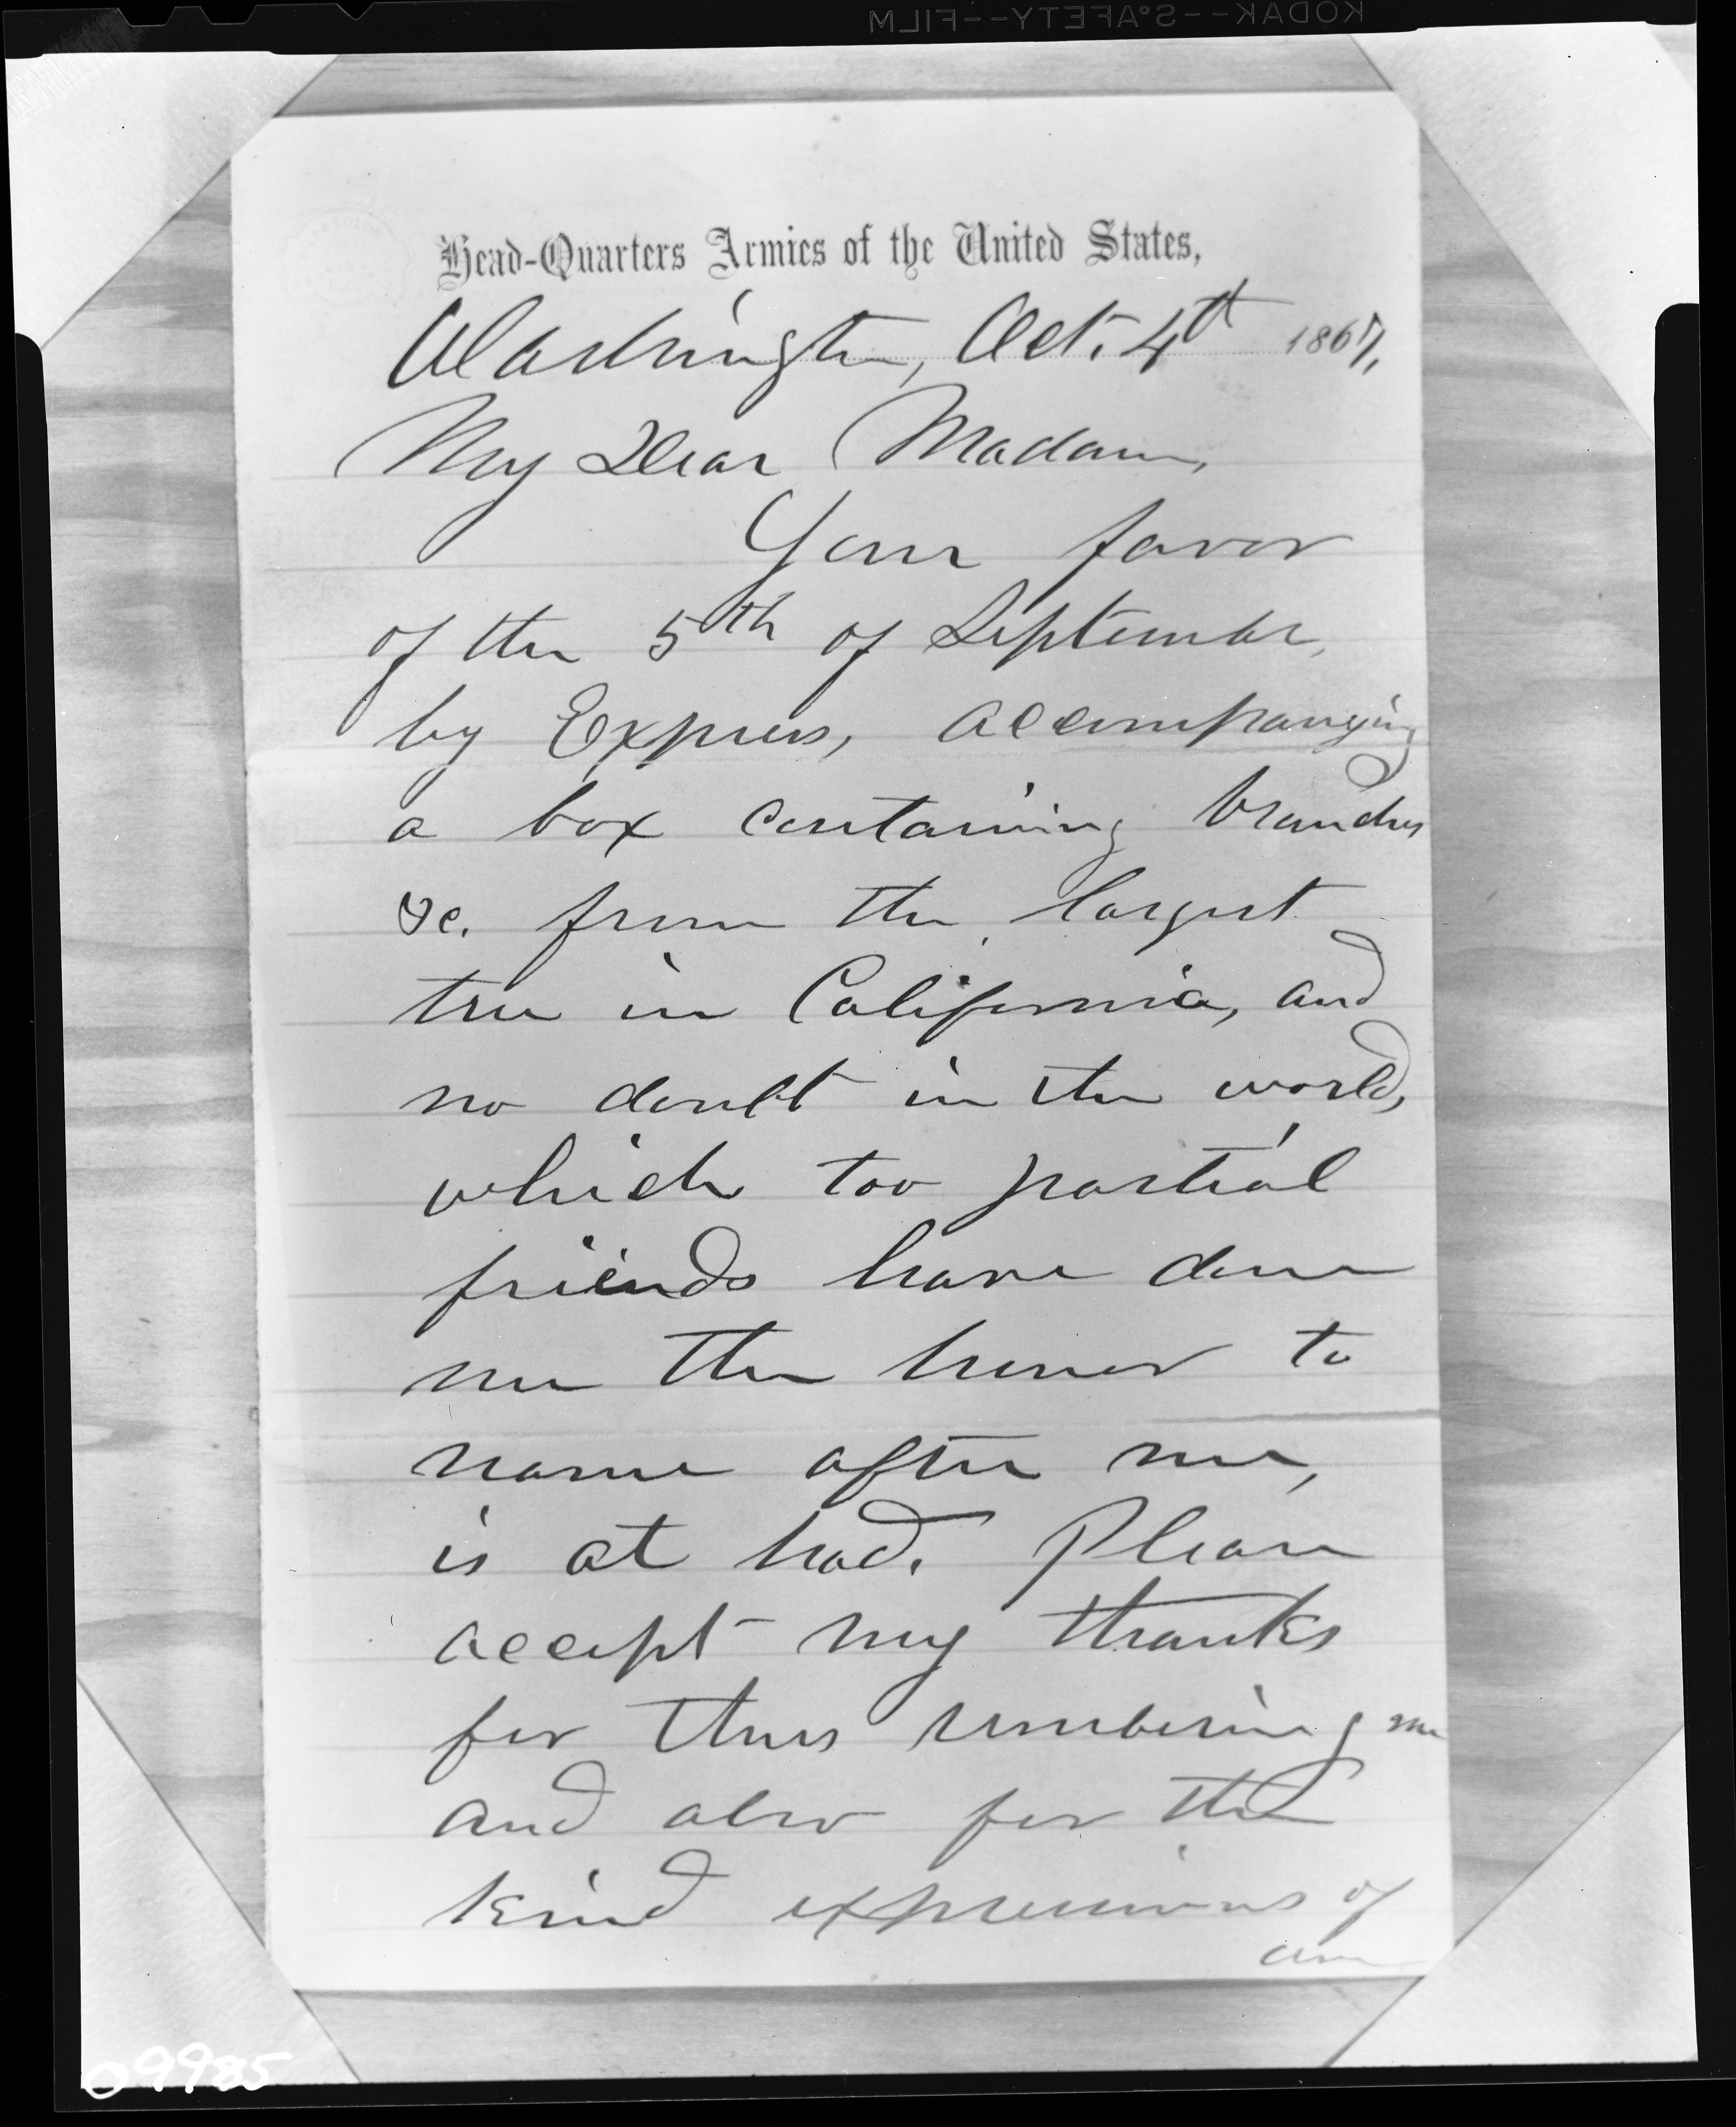 KODAK--S°AFETY--FILM
Head-Quarters Armies of the United States,
Washington, Oct. 4th 1867,
My Dear Madam,
Your favor
of the 5th of September,
by Express, accompanying
a box containing branches
&c. from the largest
tree in California, and
no doubt in the world,
which too partial
friends have done
me the honor to
name after me,
is at had. Please
accept my thanks
for thus rembering me
and also for the
kind expressions of
09985